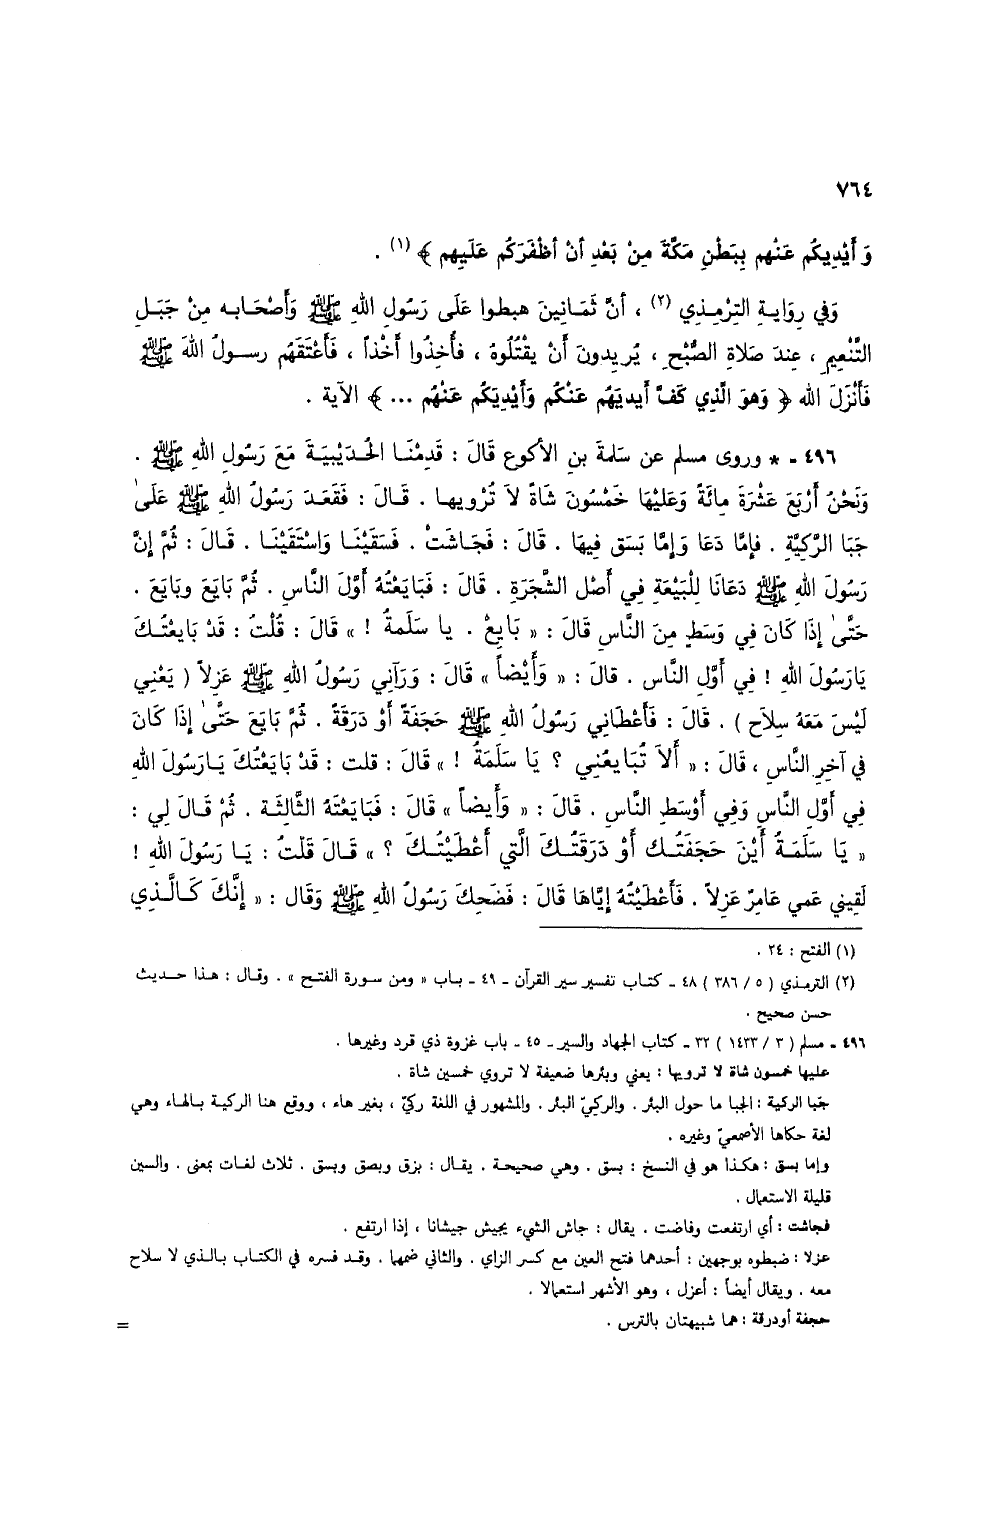 ٧٦٤
وَ أَيْدِيكُم عَنْهم بِبَطْنِ مَكَّةَ مِنْ بَعْدِ أنْ أظْفَرَكُم عَلَيهِم ﴾ (١) .
وَفي رِوَايةِ التِرْمِذي (٢) ، أنَّ ثَمَانِينَ هبطوا عَلَى رَسُولِ اللهِ ﷺ وَأَصْحَابه مِنْ جَبَلِ
التَّنْعِيمِ ، عِندَ صَلَاةِ الصُّبْحِ ، يُرِيدونَ أَنْ يقْتُلُوهُ ، فأُخِذُوا أَخْذاً ، فَأَعْتَقَهُم رسولُ اللهَ ﷺ
فَأَنْزَلَ الله ﴿ وَهوَ الَّذِي كَفَّ أَيديَهُم عَنْكُم وَأَيْدِيَكُم عَنْهُم ... ﴾ الآية .
٤٩٦ - * وروى مسلم عن سَلمةَ بنِ الأكوع قَالَ : قَدِمْنَا الحُدَيْبِيَةَ مَعَ رَسُولِ اللهِ ﷺ .
وَنَحْنُ أَرْبَعَ عَشْرَةَ مِائَةً وَعَلَيْهَا خَمْسُونَ شَاةً لاَ تُرْويها . قَالَ : فَقَعَدَ رَسُولُ اللهِ ﷺ عَلَىٰ
جَبَا الرَّكِيَّةِ . فَإمَّا دَعَا وَإِمَّا بَسَق فِيهَا . قَالَ : فَجَاشَتْ . فَسَقَيْنَا وَاسْتَقَيْنَا . قَالَ : ثُمَّ إنَّ
رَسُولَ اللهِ ﷺ دَعَانَا لِلْبَيْعَةِ فِي أَصْلِ الشَّجَرَةِ . قَالَ : فَبَايَعْتُهُ أَوَّلَ النَّاسِ . ثُمَّ بَايَعَ وبَايَعَ .
حَتَّىٰ إِذَا كَانَ فِي وَسَطٍ مِنَ النَّاسِ قَالَ : « بَايِعْ . يا سَلَمةُ ! » قَالَ : قُلْتُ : قَدْ بَايعْتُكَ
يَارَسُولَ اللهِ ! فِي أَوَّلِ النَّاسِ . قالَ : « وَأَيْضاً » قَالَ : وَرَآنِي رَسُولُ اللهِ ﷺ عَزِلاً ( يَعْنِي
لَيْسَ مَعَهُ سِلاَح ) . قَالَ : فَأَعْطَانِي رَسُولُ اللهِ ﷺ حَجَفَةً أَوْ دَرَقَةً . ثُمَّ بَايَعَ حَتَّىٰ إِذَا كَانَ
في آخِرِ النَّاسِ ، قَالَ : « أَلاَ تُبَايعُنِي ؟ يَا سَلَمَةُ ! » قَالَ : قلت : قَدْ بَايَعْتُكَ يَارَسُولَ اللهِ
فِي أَوَّلِ النَّاسِ وَفِي أَوْسَطِ النَّاسِ . قَالَ : « وَأَيضاً » قَالَ : فَبَايَعْتَهُ الثَّالِثَة . ثُمَّ قَالَ لِي :
« يَا سَلَمَةُ أَيْنَ حَجَفَتُكَ أَوْ دَرَقَتُكَ الَّتِي أَعْطَيْتُكَ ؟ » قَالَ قُلْتُ : يَا رَسُولَ اللهِ !
لَقِيَنِي عَمِي عَامِرٌ عَزِلاً . فَأَعْطَيْتُهُ إِيَّاهَا قَالَ : فَضَحِكَ رَسُولُ اللهِ ﷺ وَقَال : « إِنَّكَ كَالَّذِي
(١) الفتح : ٢٤ .
(٢) الترمذي ( ٥ / ٣٨٦ ) ٤٨ - كتاب تفسير سير القرآن - ٤٩ - باب « ومن سورة الفتح » . وقال : هذا حديث
حسن صحيح .
٤٩٦ - مسلم ( ٣ / ١٤٣٣ ) ٣٢ - كتاب الجهاد والسير - ٤٥ - باب غزوة ذي قرد وغيرها .
عليها خمسون شاة لا ترويها : يعني وبئرها ضعيفة لا تروي خمسين شاة .
جَبا الركية : الجبا ما حول البئر . والركيّ البئر . والمشهور في اللغة ركيّ ، بغير هاء ، ووقع هنا الركية بالهاء وهي
لغة حكاها الأصمعيّ وغيره .
وإما بسق : هكذا هو في النسخ : بسق . وهي صحيحة . يقال : بزق وبصق وبسق . ثلاث لغات بمعنى . والسين
قليلة الاستعمال .
فجاشت : أي ارتفعت وفاضت . يقال : جاش الشيء يجيش جيشانا ، إذا ارتفع .
عزلا : ضبطوه بوجهين : أحدهما فتح العين مع كسر الزاي . والثاني ضمها . وقد فسره في الكتاب بالذي لا سلاح
معه . ويقال أيضاً : أعزل ، وهو الأشهر استعمالا .
حجفة أودرقة : هما شبيهتان بالترس .
=